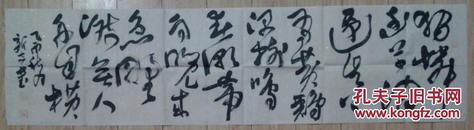 独怜
幽草涧
边生上
有黄鹂
深树鸣
春潮带
雨晚来
急野
渡无人
舟自横
孔夫子旧书网
KONGFZ.COM